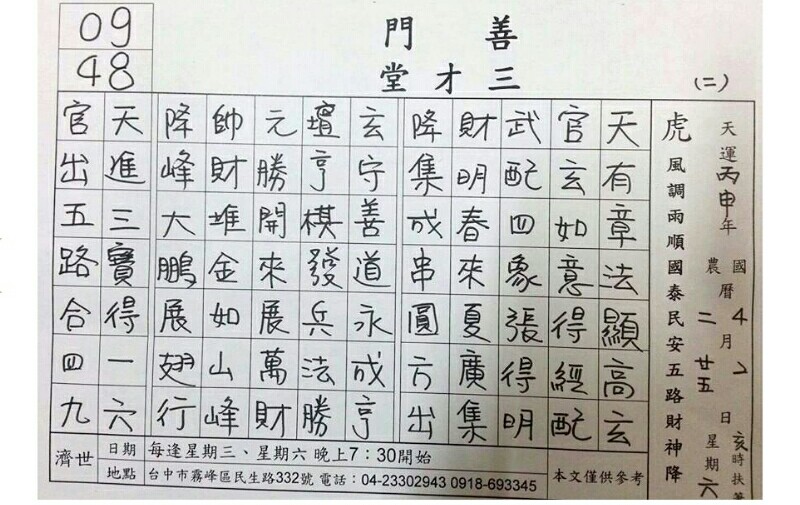 09
48
善門
三才堂
(二)
天運丙申年
國曆4月2日
農曆二月廿五日
亥時扶筆
星期六
虎風調雨順國泰民安五路財神降
天有章法顯高玄
官玄如意得經配
武配四象張得明
財明春來夏廣集
降集成串圓方出
玄守善道永成亨
壇亨棋發兵法勝
元勝開來展萬財
帥財堆金如山峰
降峰大鵬展翅行
天進三寶得一六
官出五路合四九
濟世
日期 每逢星期三、星期六 晚上7：30開始
地點 台中市霧峰區民生路332號 電話：04-23302943 0918-693345
本文僅供參考